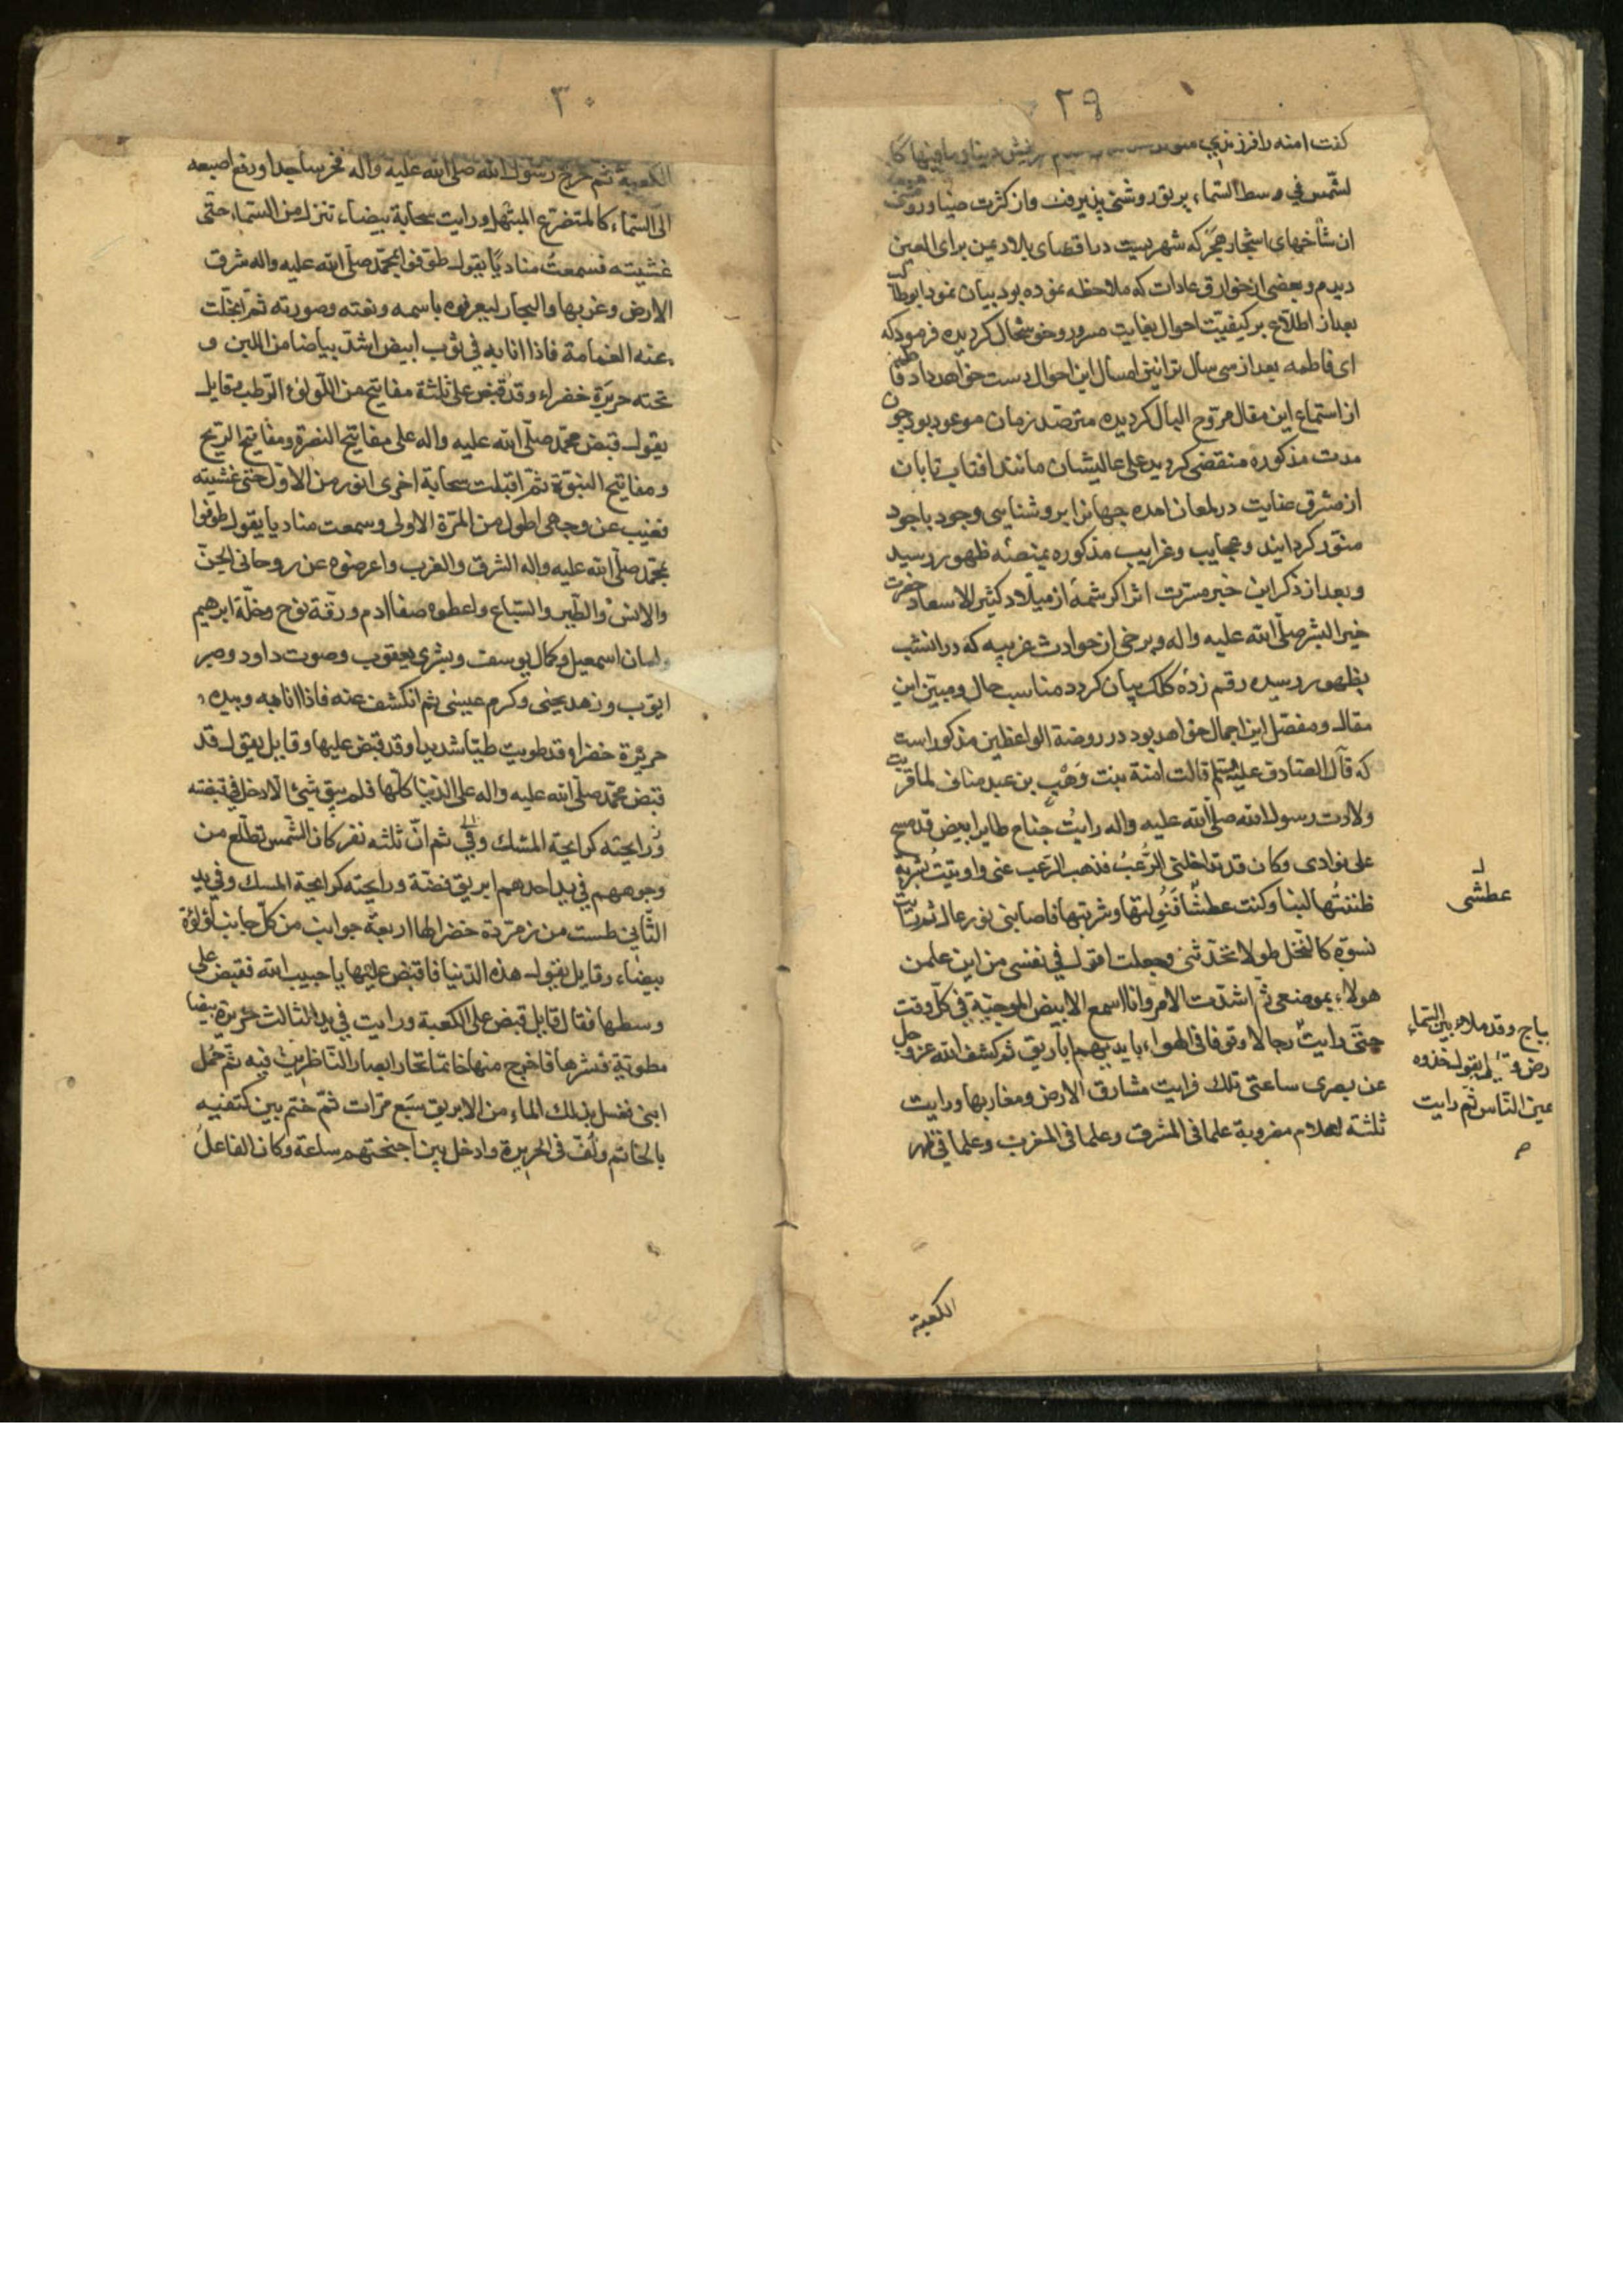 ٢٩
كفت امنه را فرزندي
لشمس في وسط السماء بريق روشنى پذيرفت واز كثرت ضيا وروشنى
ان شاخهاى اشجار هجر كه شهريست در اقصاى بلاد يمن براى العين
ديدم وبعضى از خوارق عادات كه ملاحظه نموده بود بيان نمود ابوطالب
بعد از اطلاع بر كيفيت احوال بغايت مسرور وخوشحال كرديده فرمود كه
اى فاطمه بعد از سى سال ترا نيز امسال اين احوال دست خواهد داد فاطمه
از استماع اين مقال مروح البال كرديده مترصد زمان موعود بود چون
مدت مذكوره منقضى كرديد على عاليشان مانند افتاب تابان
از مشرق عنايت در لمعان امده جهانرا بروشنايى وجود باجود
منور كردانيد وعجايب وغرايب مذكوره بمنصه ظهور رسيد
وبعد از ذكر اين خبر مسرت اثر اكر شمهٔ از ميلاد كثير الاسعاد حضرت
خير البشر صلى الله عليه واله وبرخى از حوادث غريبه كه در انشب
بظهور رسيده رقم زدهٔ كلك بيان كردد مناسب حال ومبين اين
مقال ومفصل اين اجمال خواهد بود در روضة الواعظين مذكور است
كه قال الصادق عليه السلم قالت امنة بنت وهب بن عبد مناف لما قربت
ولادت رسول الله صلى الله عليه واله رايت جناح طاير ابيض قد مسح
على فوادى وكان قد تداخلنى الرعب فذهب الرعب عنى واوتيت بشربة
ظننتها لبنا وكنت عطشا فنولتها وشربتها فاصابنى نور عال ثم رايت
نسوة كالنخل طولا تحدثنى وجعلت اقول في نفسى من اين علمن
هولاء بموضعى ثم اشتدت الامر وانا اسمع الابيض الوجبة في كل وقت
حتى رايت رجالا وقوفا في الهواء بايديهم اباريق ثم كشف الله عز وجل
عن بصرى ساعتى تلك فرايت مشارق الارض ومغاربها ورايت
ثلثة اعلام مضروبة علما في المشرق وعلما في المغرب وعلما في ظهر
عطشى
يباج وقد ملاء بين السماء
رض و يقول خذوه
عين الناس ثم رايت
الكعبة
٣٠
الكعبة ثم خرج رسول الله صلى الله عليه واله فخر ساجدا ورفع اصبعه
الى السماء كالمتضرع المبتهل ورايت سحابة بيضاء تنزل من السماء حتى
غشيته فسمعت مناديا يقول طوفوا بمحمد صلى الله عليه واله شرق
الارض وغربها والبحار ليعرفوه باسمه ونعته وصورته ثم انجلت
عنه الغمامة فاذا انا به في ثوب ابيض اشد بياضا من اللبن و
تحته حريرة خضراء وقد قبض على ثلثة مفاتيح من اللولوء الرطب وقايل
يقول قبض محمد صلى الله عليه واله على مفاتيح النصرة ومفاتيح الريح
ومفاتيح النبوة ثم اقبلت سحابة اخرى انور من الاول حتى غشيته
فغيب عن وجهى اطول من المرة الاولى وسمعت مناديا يقول طوفوا
بمحمد صلى الله عليه واله الشرق والغرب واعرضوه عن روحانى الجن
والانس والطير والسباع واعطوه صفا ادم ورقة نوح وخلة ابرهيم
ولسان اسمعيل وكمال يوسف وبشرى يعقوب وصوت داود وصبر
ايوب وزهد يحيى وكرم عيسى ثم انكشف عنه فاذا انا به وبيده
حريرة خضرا وقد طويت طيا شديدا وقد قبض عليها وقايل يقول قد
قبض محمد صلى الله عليه واله على الدنيا كلها فلم يبق شئ الا دخل في قبضته
ورايحته كرايحة المسك وفي ثم ان ثلثه نفر كان الشمس تطلع من
وجوههم في يد احدهم ابريق فضة ورايحته كرايحة المسك وفي يد
الثانى طست من زمردة خضرا لها اربعة جوانب من كل جانب لؤلؤة
بيضاء وقايل يقول هذه الدنيا فاقبض عليها يا حبيب الله فقبض على
وسطها فقال قايل قبض على الكعبة ورايت في يد الثالث حريرة بيضا
مطوية فنشرها فاخرج منها خاتما تحار ابصار الناظرين فيه ثم حمل
ابنى فغسل بذلك الماء من الابريق سبع مرات ثم ختم بين كتفيه
بالخاتم ولف في الحريرة وادخل بين اجنحتهم ساعة وكان الفاعل